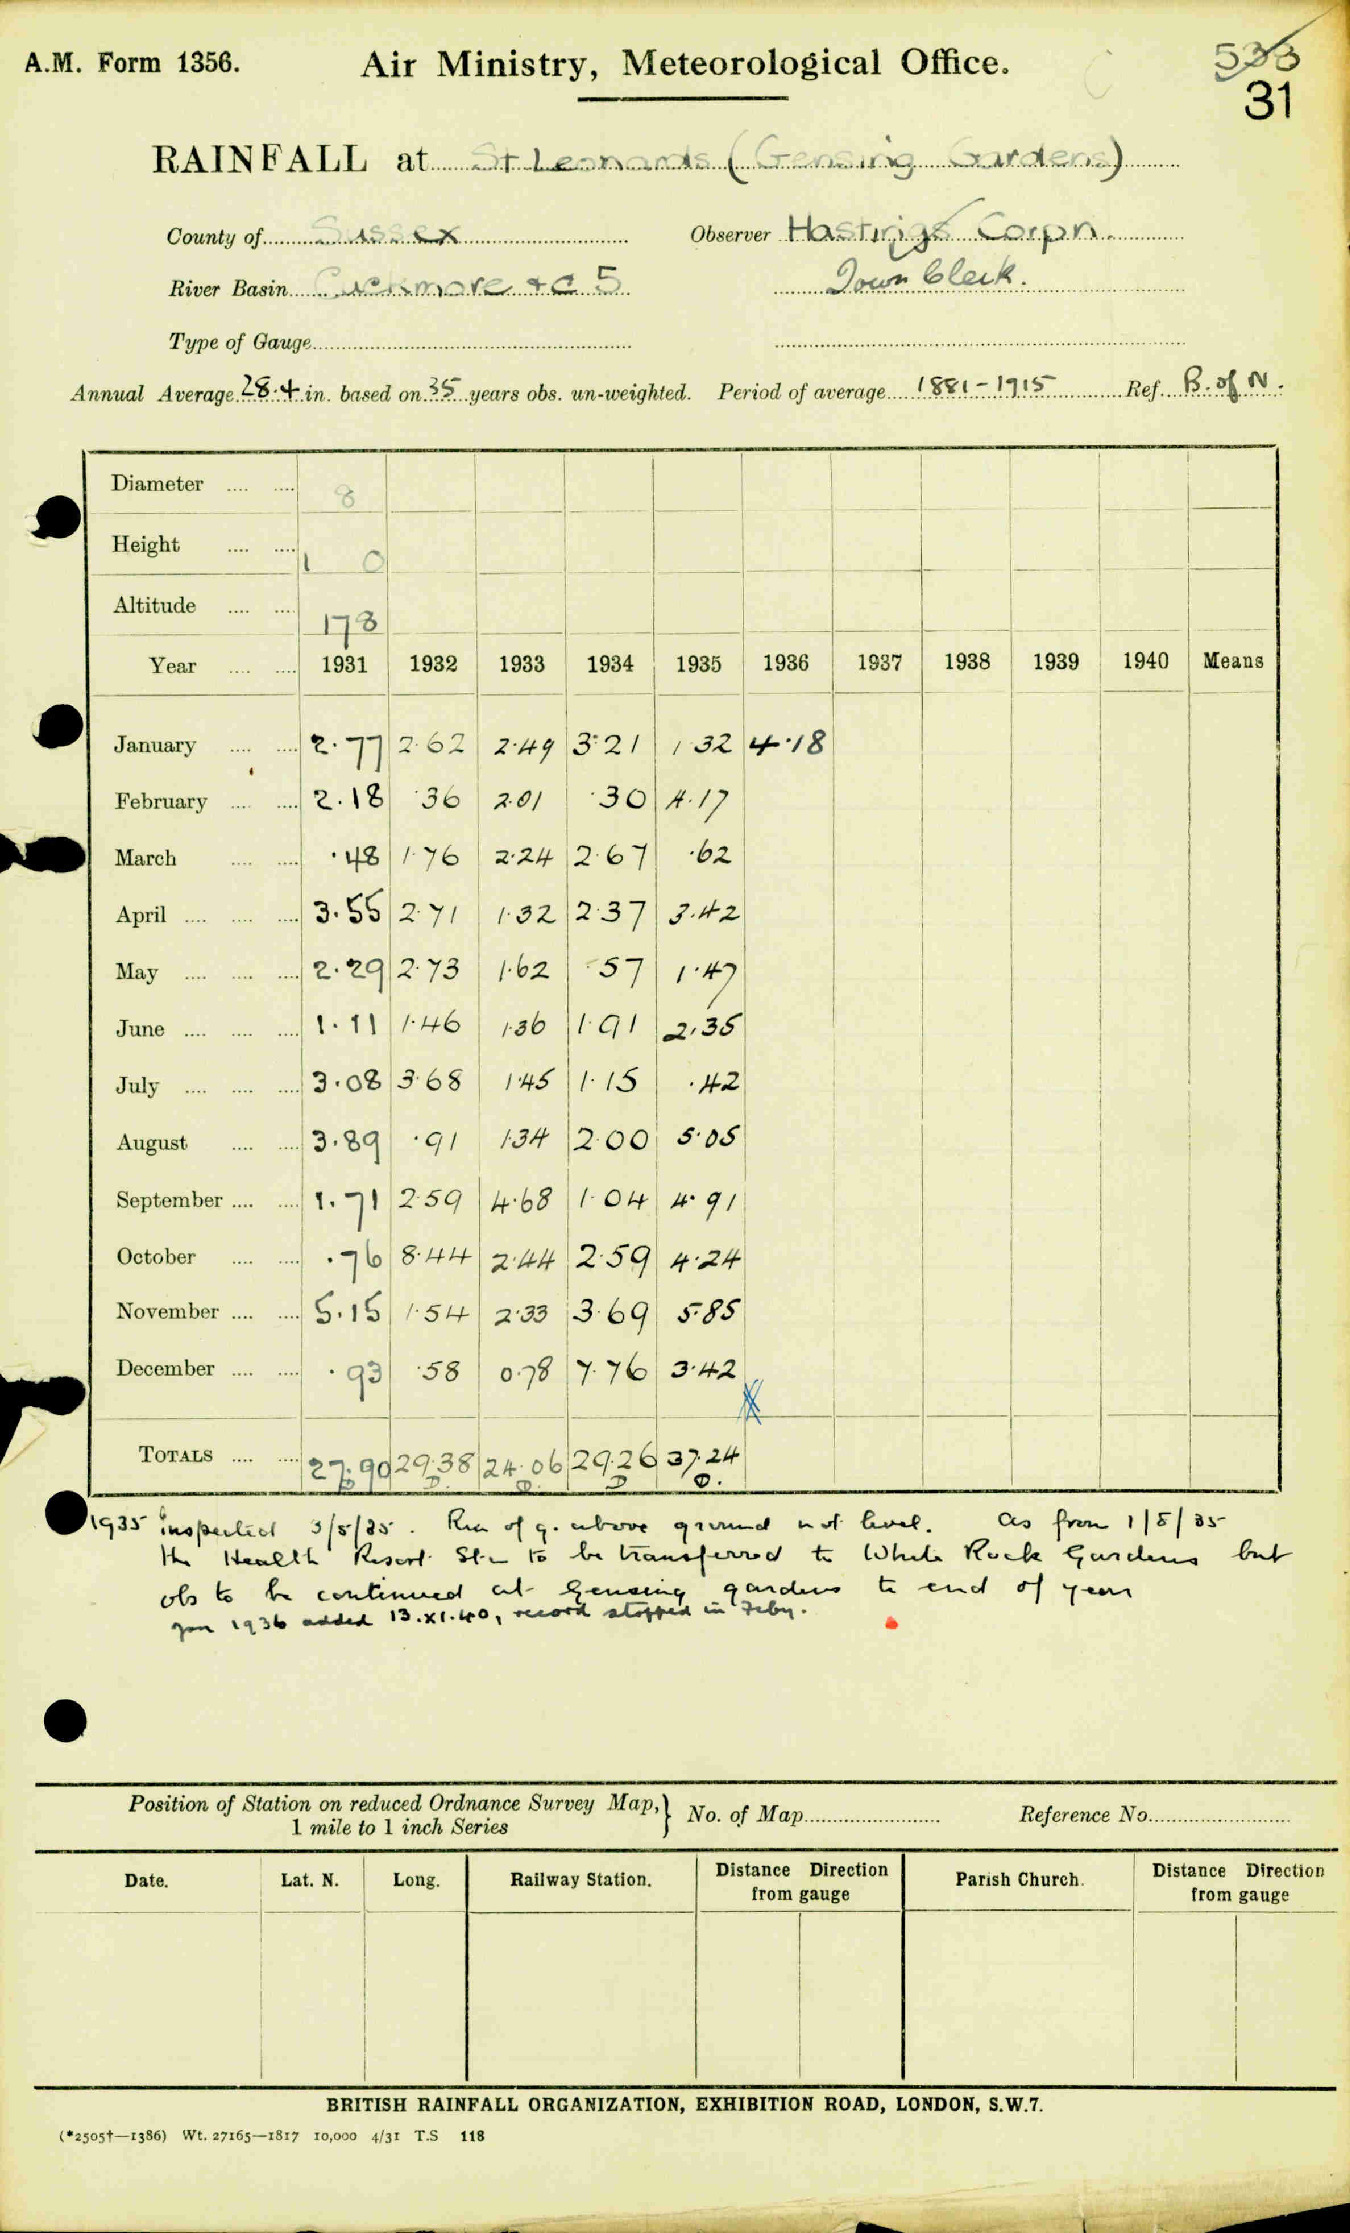 A.M. Form 1356. Air Ministry, Meteorological Office. 533
31
RAINFALL at St Leonards (Gensing Gardens)
County of Sussex Observer Hastings Corpn.
River Basin Cuckmore +c 5 Town Clerk.
Type of Gauge
Annual Average 28.4 in. based on 35 years obs. un-weighted. Period of average 1881-1915 Ref. B. of N.
Diameter 8
Height 1 0
Altitude 178
Year 1931 1932 1933 1934 1935 1936 1937 1938 1939 1940 Means
January 2.77 2.62 2.49 3.21 1.32 4.18
February 2.18 .36 2.01 .30 4.17
March .48 1.76 2.24 2.67 .62
April 3.55 2.71 1.32 2.37 3.42
May 2.29 2.73 1.62 .57 1.47
June 1.11 1.46 1.36 1.91 2.35
July 3.08 3.68 1.45 1.15 .42
August 3.89 .91 1.34 2.00 5.05
September 1.71 2.59 4.68 1.04 4.91
October .76 8.44 2.44 2.59 4.24
November 5.15 1.54 2.33 3.69 5.85
December .93 .58 0.78 7.76 3.42
TOTALS 27.90 29.38 24.06 29.26 37.24
D D. D. D D.
1935 inspected 3/5/35. Rim of g. above ground not level. As from 1/5/35
the Health Resort Stn to be transferred to White Rock Gardens but
obs to be continued at Gensing gardens to end of year
Jan 1936 added 13.XI.40, record stopped in Feby.
Position of Station on reduced Ordnance Survey Map, } No. of Map Reference No.
1 mile to 1 inch Series
Date. Lat. N. Long. Railway Station. Distance Direction from gauge Parish Church. Distance Direction from gauge
BRITISH RAINFALL ORGANIZATION, EXHIBITION ROAD, LONDON, S.W.7.
(*2505†—1386) Wt. 27165—1817 10,000 4/31 T.S 118